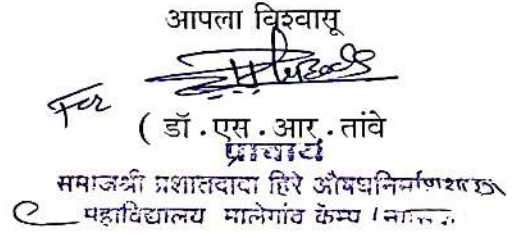 आपला विश्वासू
For
( डॉ.एस.आर.तांवे
प्राचार्य
समाजश्री प्रशातदादा हिरे औषधनिर्माणशास्त्र
महाविद्यालय मालेगांव कॅम्प (नाशिक